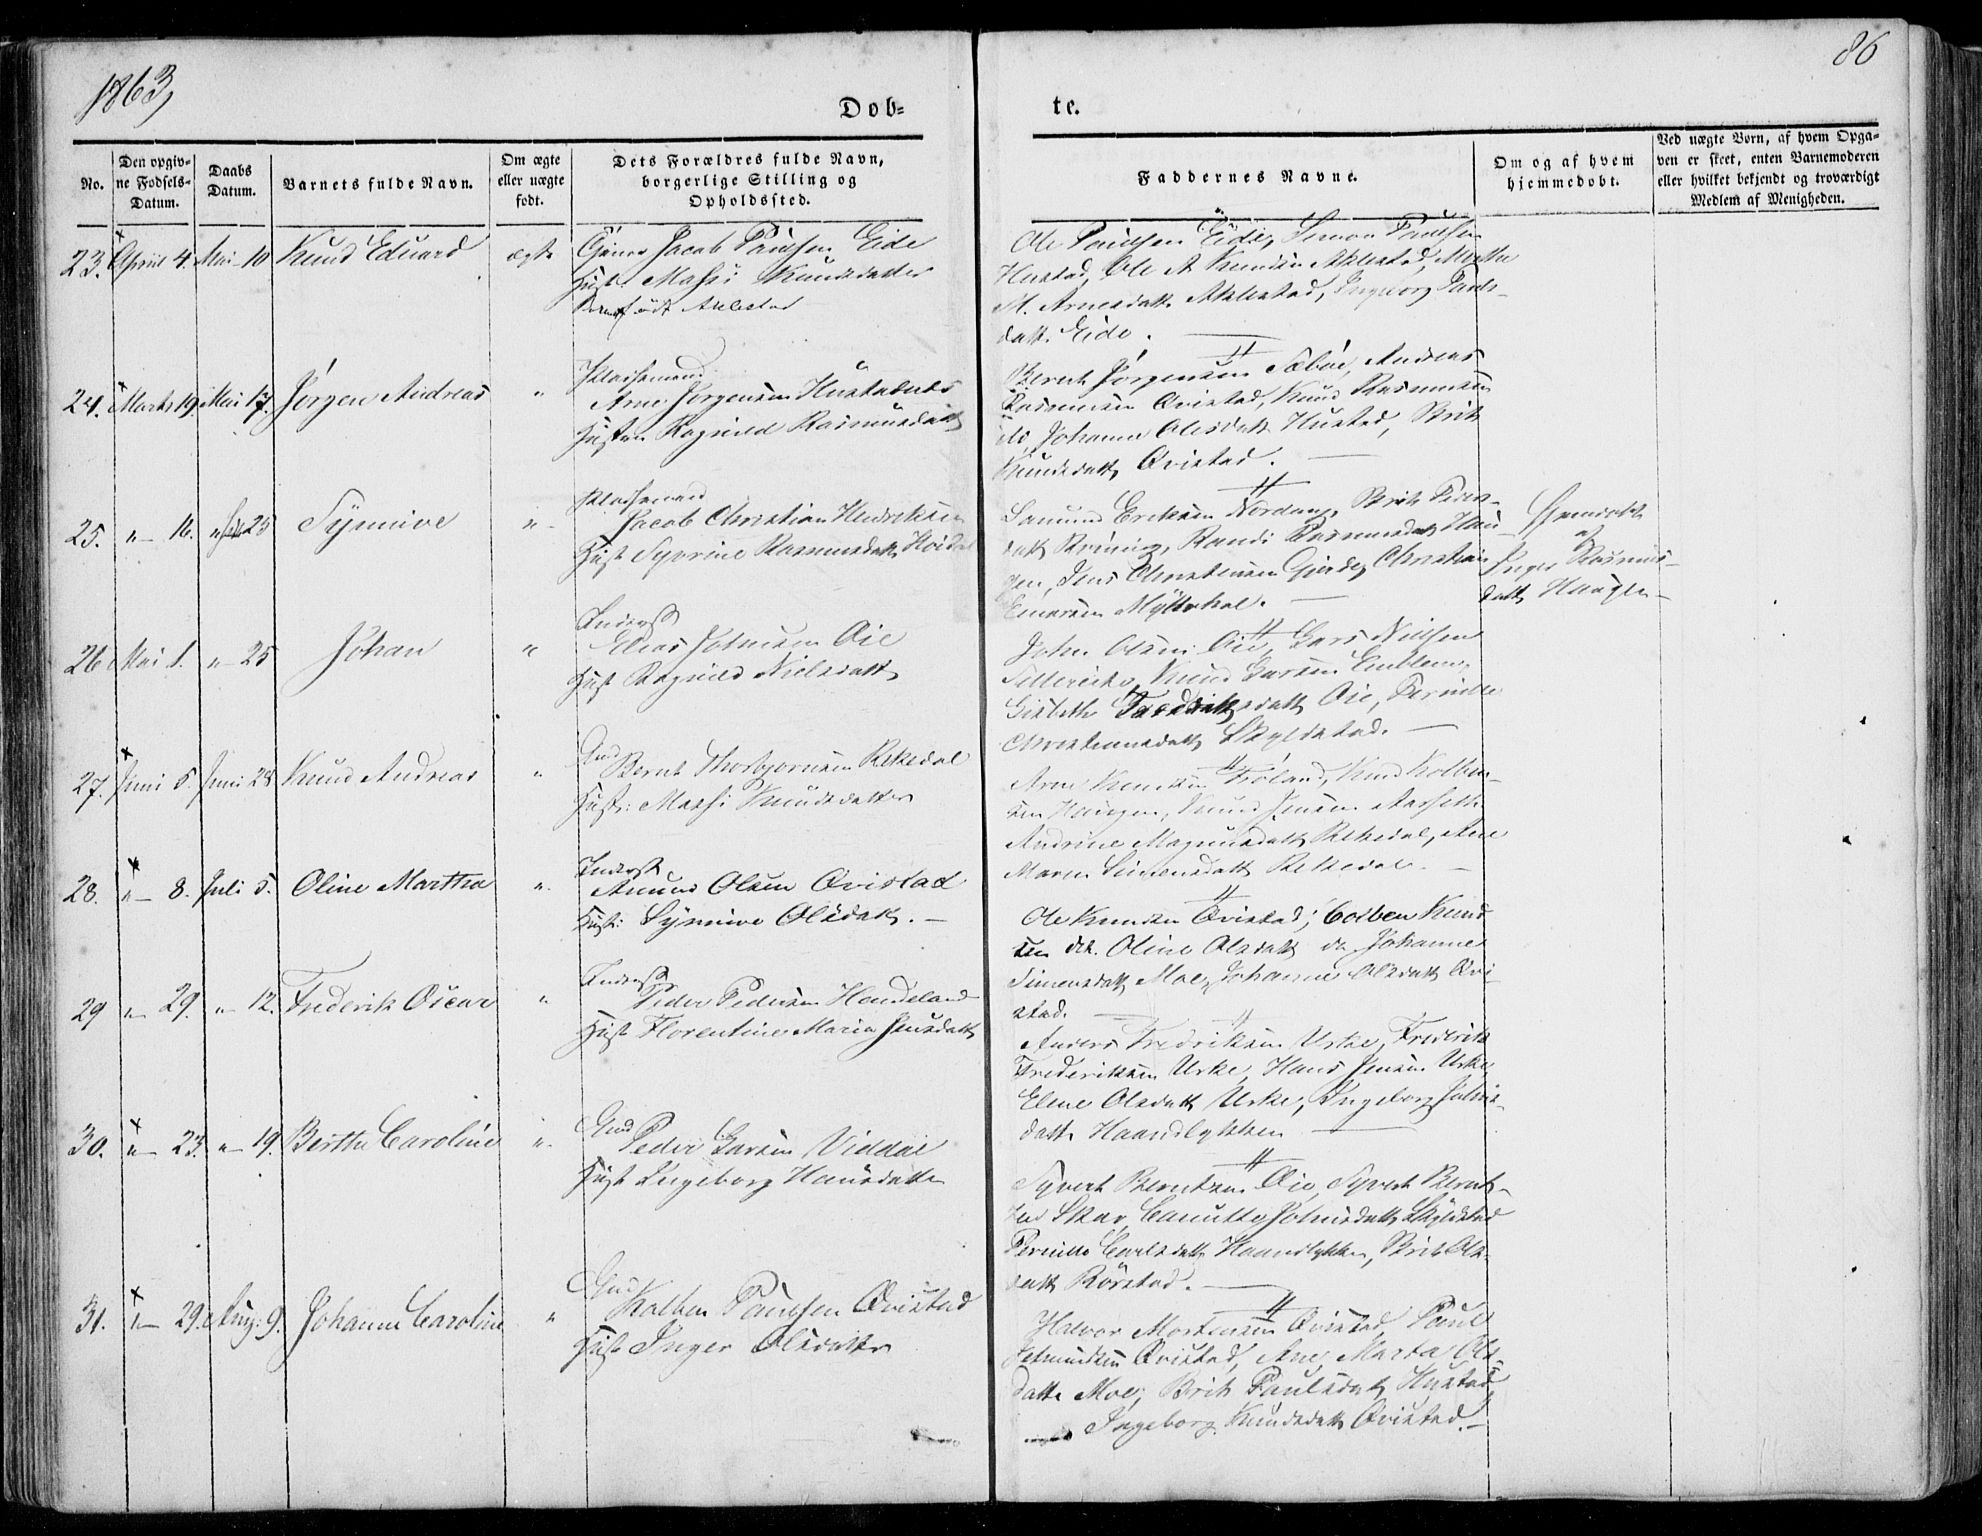 1863
86
Dob=
te.
No.
Den opgiv-
ne Fodsels-
Datum.
Daabs
Datum.
Barnets fulde Navn.
Om ægte
eller uægte
født.
Dets Forældres fulde Navn,
borgerlige Stilling og
Opholdssted.
Faddernes Navne.
Om og af hvem
hjemmedobt.
Ved uægte Born, af hvem Opga-
ven er skeet, enten Barnemoderen
eller hvilket bekjendt og troværdigt
Medlem af Menigheden.
23. April 4. Mai 10 Knud Eduard ægte
Jacob Paulsen Eide
Hust. Massi Knudsdatter
født Aklestad
Ole Paulsen Eide, Simon Paulsen
Hustad, Ole A Knudsen Aklestad, Marthe
M. Arnesdatt Aklestad, Ingeborg Pauls-
datt. Eide.
24. Marts 19. Mai 17. Jørgen Andreas "
Pladsemand
Arne Jørgensen Hustadnes
Hustru Ragnild Rasmusdatt
Bernt Jørgensen Sæbøe, Andreas
Rasmusen Qvistad, Knud Rasmusen
do, Johanne Olesdatt Hustad, Brit
Knudsdatt Qvistad.
25. " 16. " 25 Synnive "
Pladsemand
Jacob Christian Hendriksen
Hust Syverine Rasmusdatt
Samund Eriksen Nordang, Brit Peders-
datt Randi Rasmusdatt Hau-
gen, Jens Christensen Gjerde, Christian
Einarsen
Hjemdøbt
af
Inger Rasmus-
datt Haugen
26 Mai 1. " 25 Johan "
Inderst
Elias Johnsen Øie
Hust Ragnild Nielsdatt
John Olsen Øie, Lars Nilsen
Knud Larsen Emblem,
Lisbeth datt Øie, Pernille
Christiansdatt Skylstad.
27. Juni 5. Juni 28 Knud Andreas "
Gmd
Bernt Thorbjørnsen Rekedal
Hust: Massi Knudsdatter
Arne Knudsen Frøland, Knud Kolben-
sen Haugen, Knud Jensen Aarseth
Andrine Magnusdatt Rekedal, Ane
Maren Simensdatt Rekedal.
28. " 8. Juli 5. Oline Martha "
Inderst
Amund Olsen Qvistad
Hust: Synnive Olsdatt.
Ole Knudsen Qvistad; Colben Knud
sen do. Oline Olsdatt do Johanne
Simensdatt Moe, Johanne Olsdatt Qvi-
stad.
29 " 29. " 12. Frederik Oscar "
Inderst
Peder Pedersen Hondeland
Hust Florentine Maria Jensdatt
Anders Fredriksen Urke, Frederik
Frederiksen Urke, Hans Jensen Urke,
Elene Olsdatt Urke, Ingeborg Johns-
datt Haandlykken
30. " 23. " 19. Berthe Caroline "
Gmd
Peder Larsen Viddal
Hust Ingeborg Hansdatter
Syvert Berntsen Øie, Syvert Bernt-
sen Skar, Canutte Johnsdatt Skylstad
Pernille Carlsdatt Haandlykken, Brit Ols-
datt Rørstad.
31. " 29. Aug. 9. Johanne Caroline "
Gmd
Kolben Paulsen Qvistad
Hust Inger Olsdatter
Halvor Mortensen Qvistad, Paul
Qvistad, Ane Marta Ols-
datte Moe, Brit Paulsdatt Hustad,
Ingeborg Knudsdatt Qvistad.